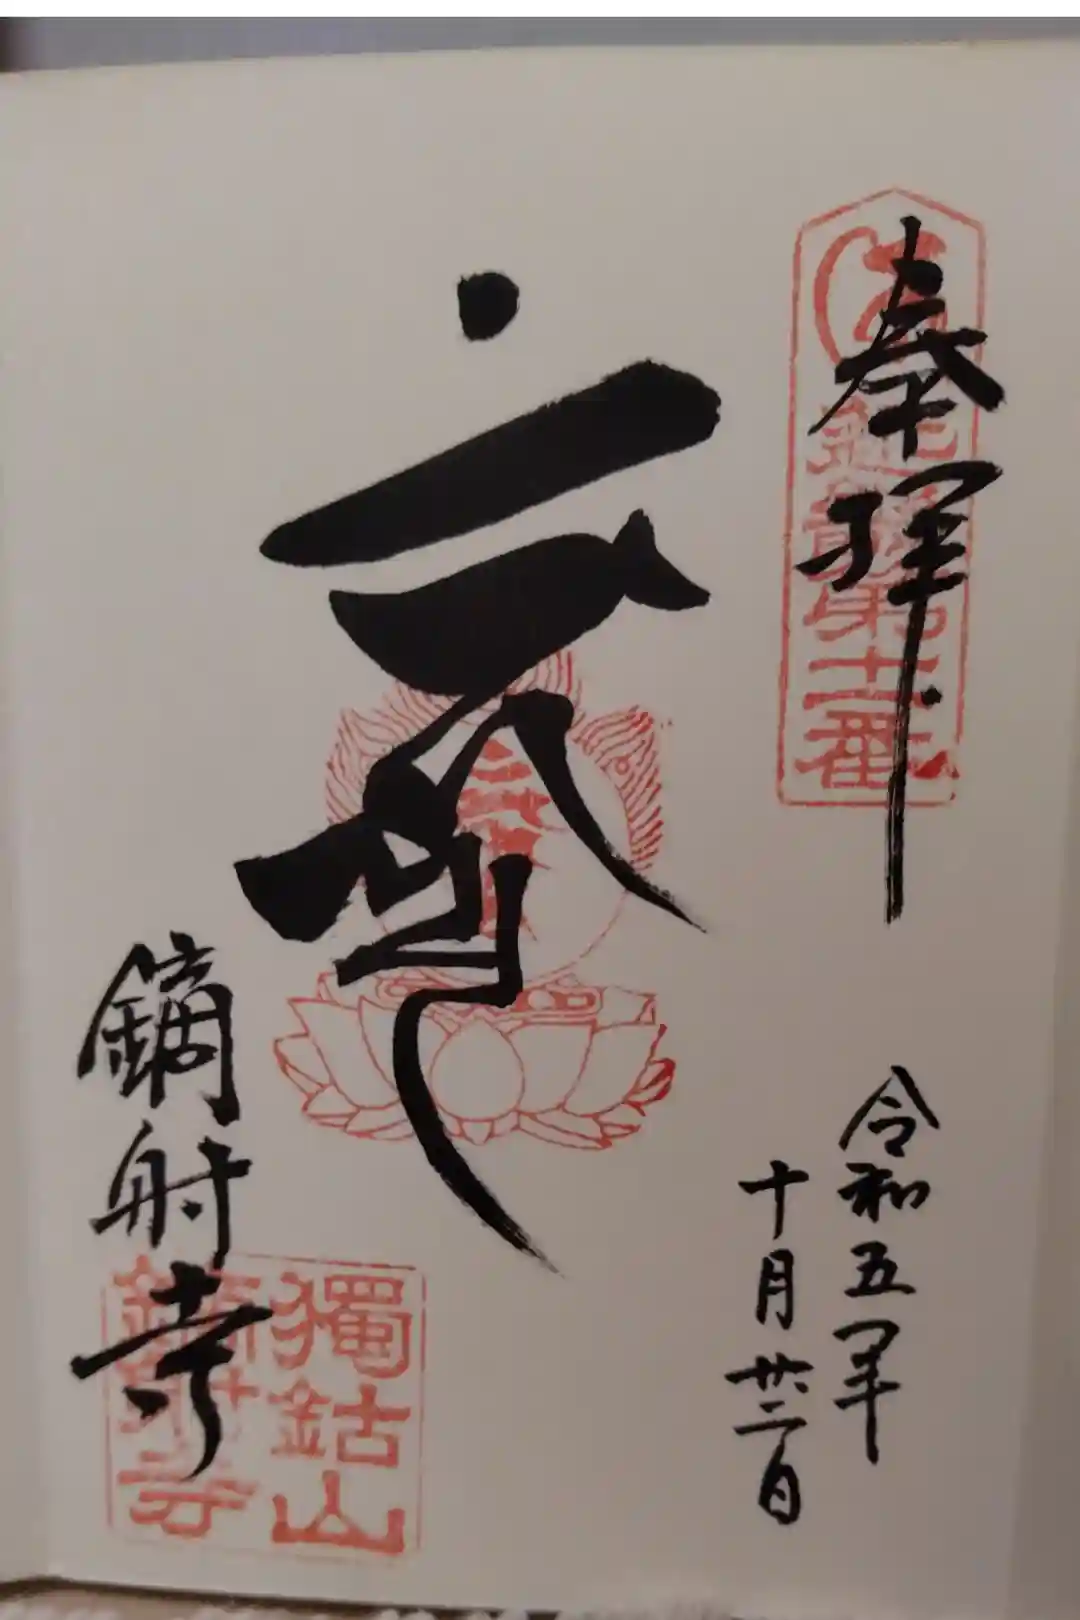 奉拝
近畿第十一番
令和五年
十月廿二日
鏑射寺
獨鈷山
鏑射寺